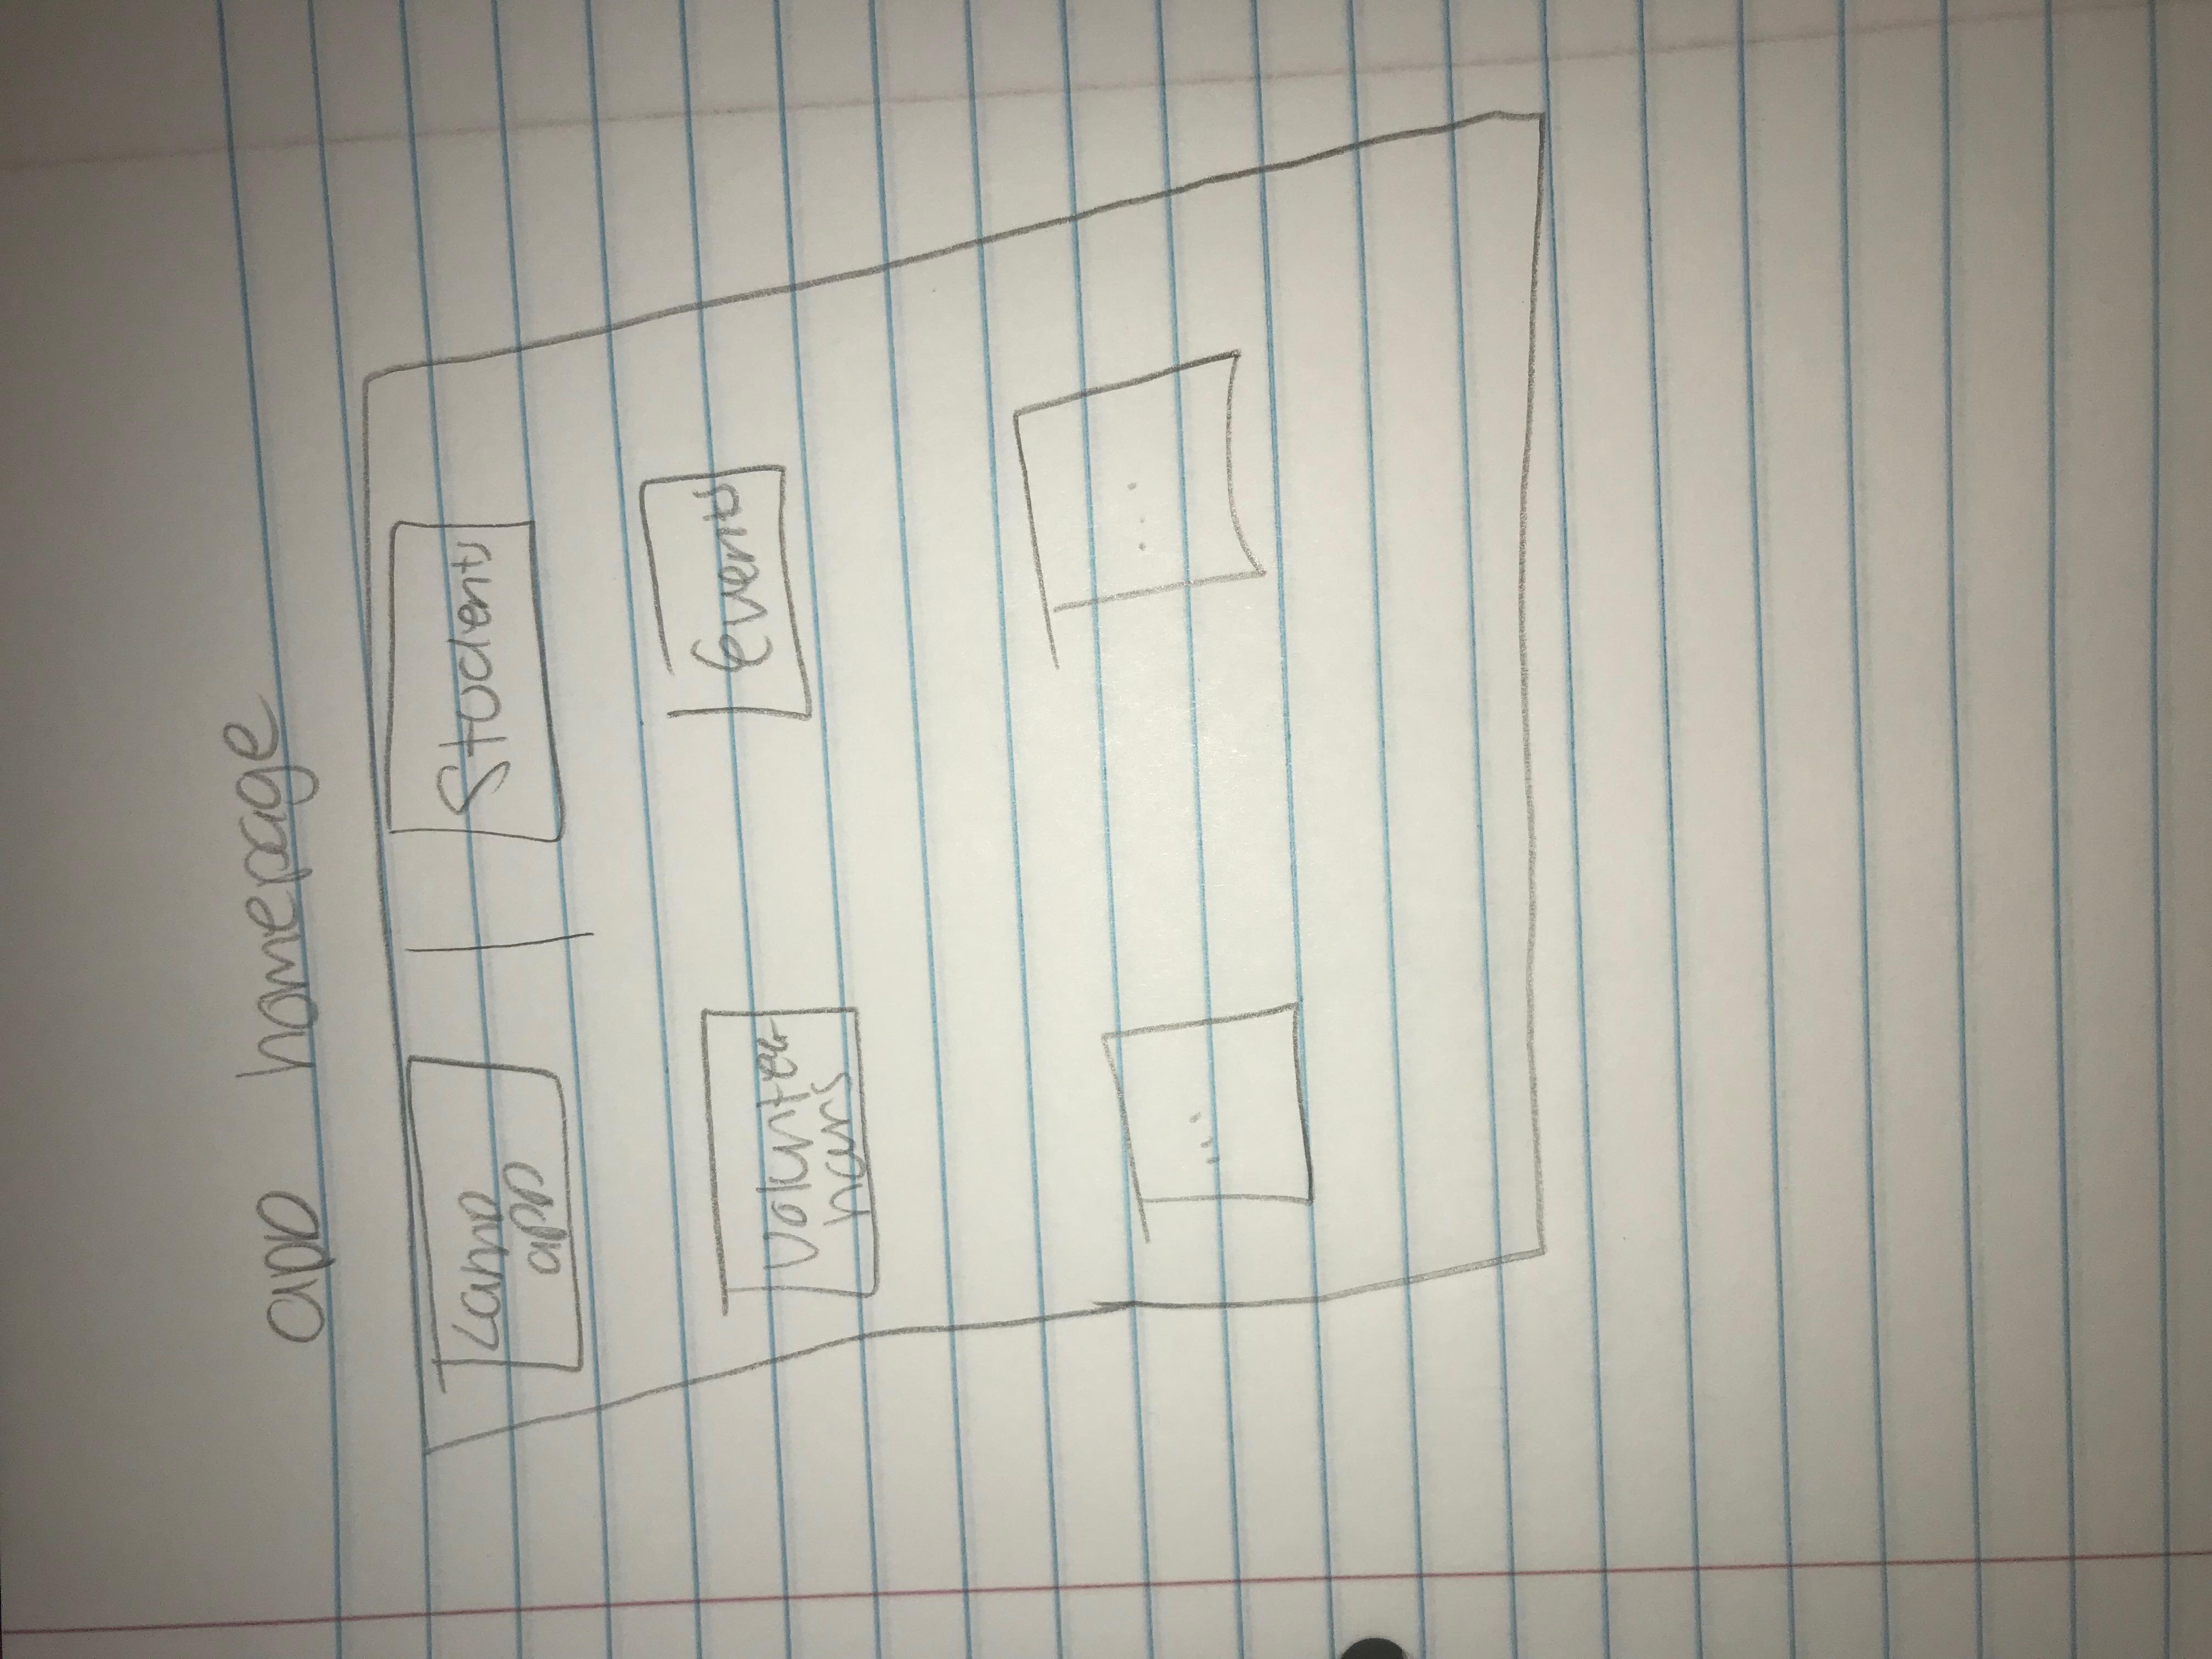 app homepage
Lamp
app
Students
Volunteer
hours
Events
...
...